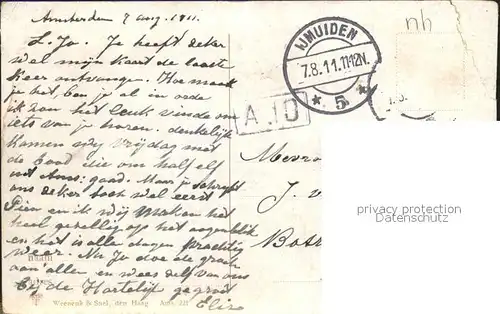 Amsterdam 7 aug. 1911.
L. Jo. Je heeft zeker
wel mijn kaart de laaste
keer ontvange. Hoe maak
je het. Ben je al in orde
ik zou het leuk vinde om
iets van je horen. denkelijk
komen wij Vrijdag met
de boot die om half elf
uit Ams: gaad. Maar je schrijft
ons zeker toch wel eerst
Sien en ik wij maken het
heel gezellig op het oogenblik
en het is alle dagen prachtig
weer. Nu Jo doe de groeten
aan allen en wees zelf van ons
bij de Hartelijk gegroet
Elize
IJMUIDEN
7.8.11.11-12N.
* 5 *
A 10
nh
Mevro
J. v
Both
privacy protection
Datenschutz
Weenenk & Snel, den Haag Ams. 221